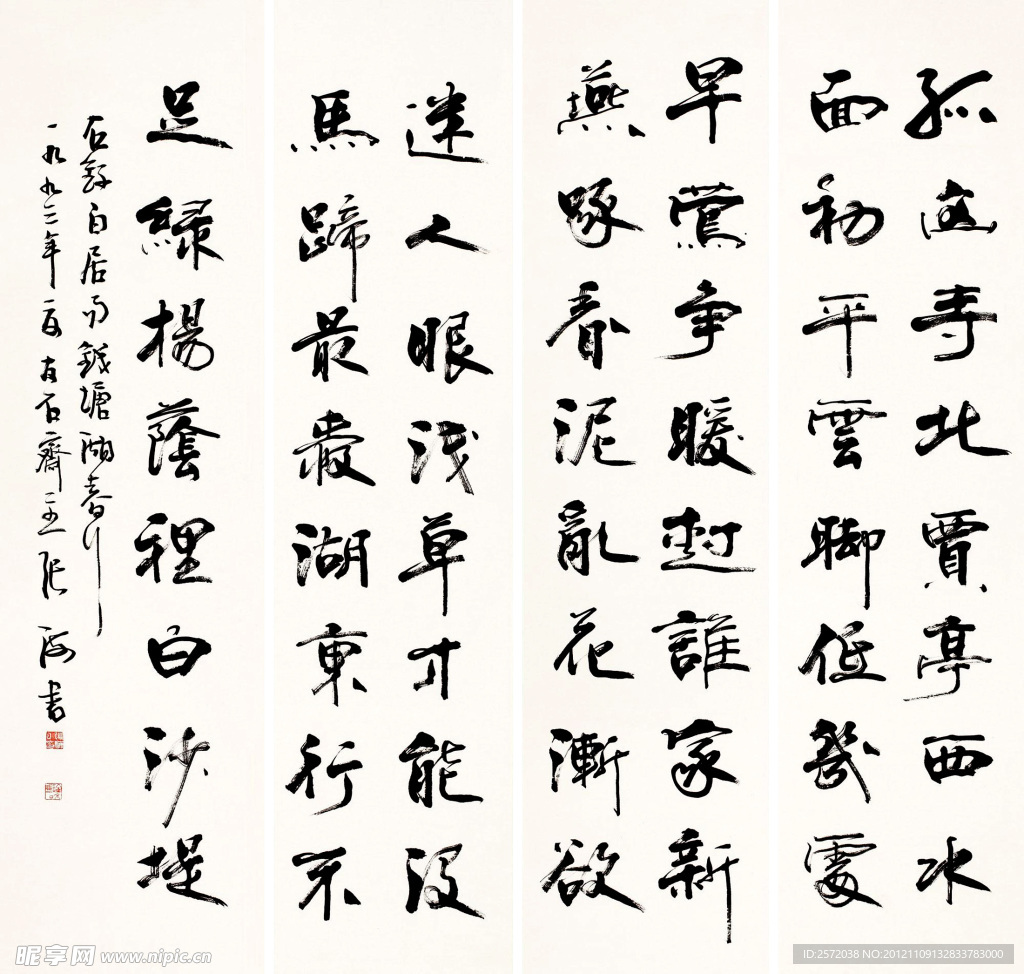 孤寺北賈亭西水
面初平雲脚低幾處
早鶯争暖樹誰家新
燕啄春泥亂花漸欲
迷人眼淺草才能没
馬蹄最愛湖東行不
足緑楊蔭裡白沙堤
右録白居易錢塘湖春行
一九九三年夏石齋主張海書
昵享网 www.nipic.cn
ID:2572038 NO:20121109132833783000